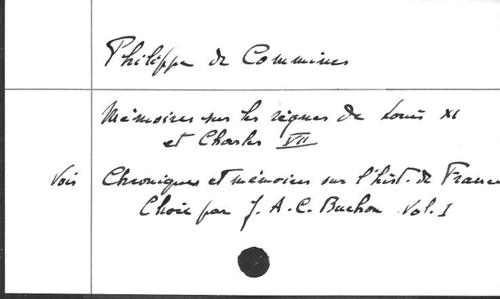 Philippe de Commines
Mémoires sur les règnes de Louis XI
et Charles VII
Vois Chroniques et mémoires sur l'hist. de France
Choix par J. A. C. Buchon Vol. I